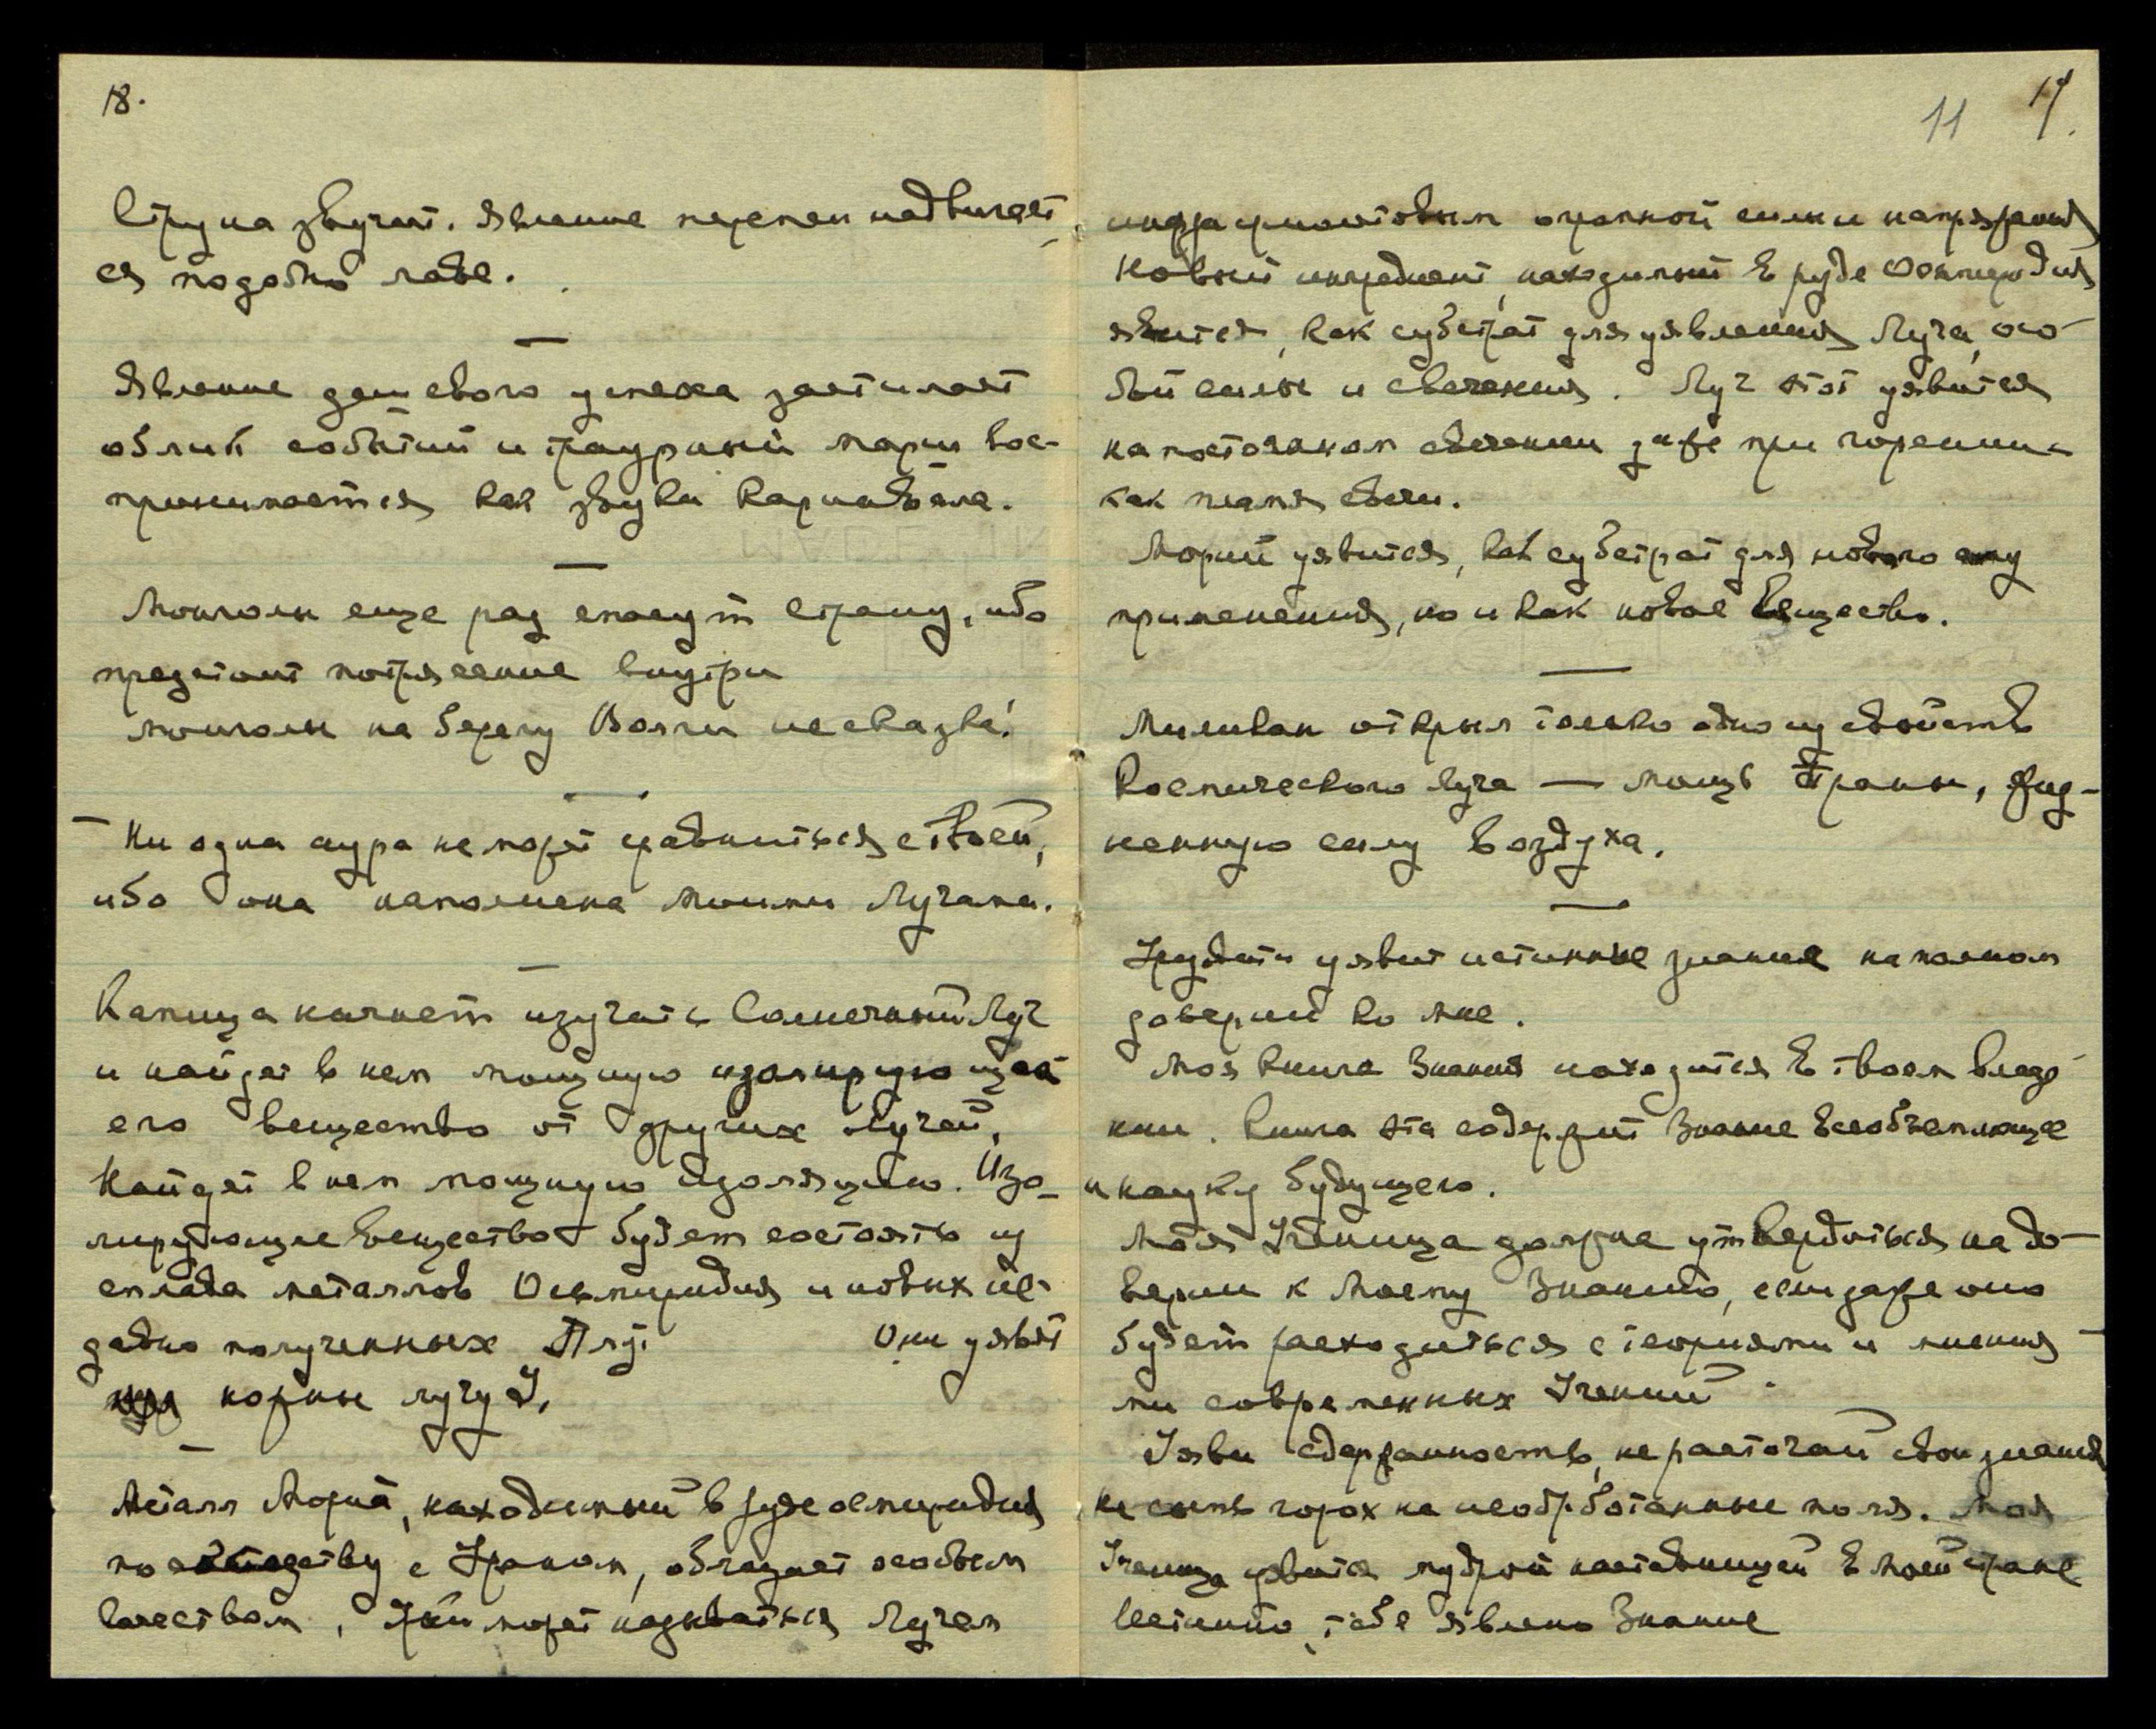 18.
Струна звучит. Явление перемен надвигает-
ся подобно лаве.
Явление дешевого успеха застилает
облик событий и траурный марш вос-
принимается как звуки карнавала.
Монголы еще раз спасут страну, ибо
предстоит потрясение внутри
монголы на берегу Волги не сказка!
Ни одна аура не может сравниться с твоей,
ибо она наполнена Моими Лучами.
Капица начнет изучать Солнечный Луч
и найдет в нем мощную изолирующее
его вещество от других лучей,
Найдет в нем мощную изоляцию. Изо-
лирующее вещество будет состоять из
сплава металлов Осьмиридия и новых не-
давно полученных Они уявят
ножны лучу
Металл Морий, находимый в руде осмиридия
по соседству с Ураном, обладает особым
качеством, может назваться Лучем
11 19.
огромной силы и напряжения
Новый ингредиент, находимый в руде Осьмиридия
явится, как субстрат для уявления Луча, осо-
бой силы и свечения. Луч этот уявится
на постоянном свечении даже при горении
как пламя свечи.
Морий уявится, как субстрат для нового
применения, но и как новое вещество.
Миликан открыл только одно из свойств
Космического луча — мощь Праны, жиз-
ненную силу воздуха.
Урусвати уявит истинные знание на полном
доверии ко Мне.
Моя Книга Знания находится в твоем владе-
нии. Книга эта содержит Знание всеобъемлющее
и науку будущего.
Моя Ученица должна утвердиться на до-
верии к Моему Знанию, если даже оно
будет расходиться с теориями и мнения-
ми современных Учений.
Уяви сдержанность, не расточай свои знания
не сыпь горох на необработанные поля. Моя
Ученица уявится мудрой наставницей в Моей стране
Истинно, тебе явлено Знание